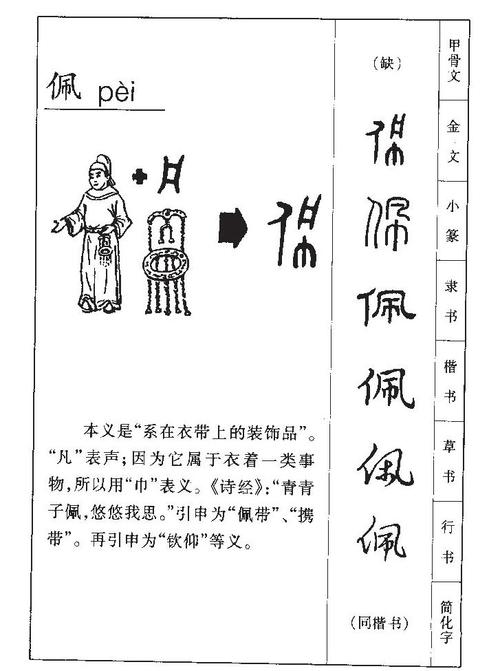 佩 pèi
本义是“系在衣带上的装饰品”。
“凡”表声；因为它属于衣着一类事
物，所以用“巾”表义。《诗经》：“青青
子佩，悠悠我思。”引申为“佩带”、“携
带”。再引申为“钦仰”等义。
（缺） 甲骨文
佩 金文
佩 小篆
佩 隶书
佩 楷书
佩 草书
佩 行书
（同楷书） 简化字